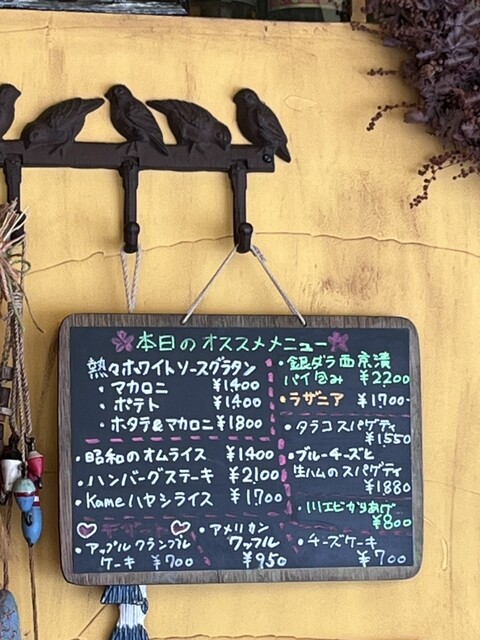 本日のオススメメニュー
熱々ホワイトソースグラタン
・マカロニ ¥1400
・ポテト ¥1400
・ホタテ&マカロニ ¥1800
・昭和のオムライス ¥1400
・ハンバーグステーキ ¥2100
・Kameハヤシライス ¥1700
・銀ダラ西京漬
パイ包み ¥2200
・ラザニア ¥1700-
・タラコスパゲティ
¥1550
・ブルーチーズと
生ハムのスパゲティ
¥1880
・川エビからあげ
¥800
デザート
・アップルクランブル
ケーキ ¥700
・アメリカン
ワッフル
¥950
・チーズケーキ
¥700